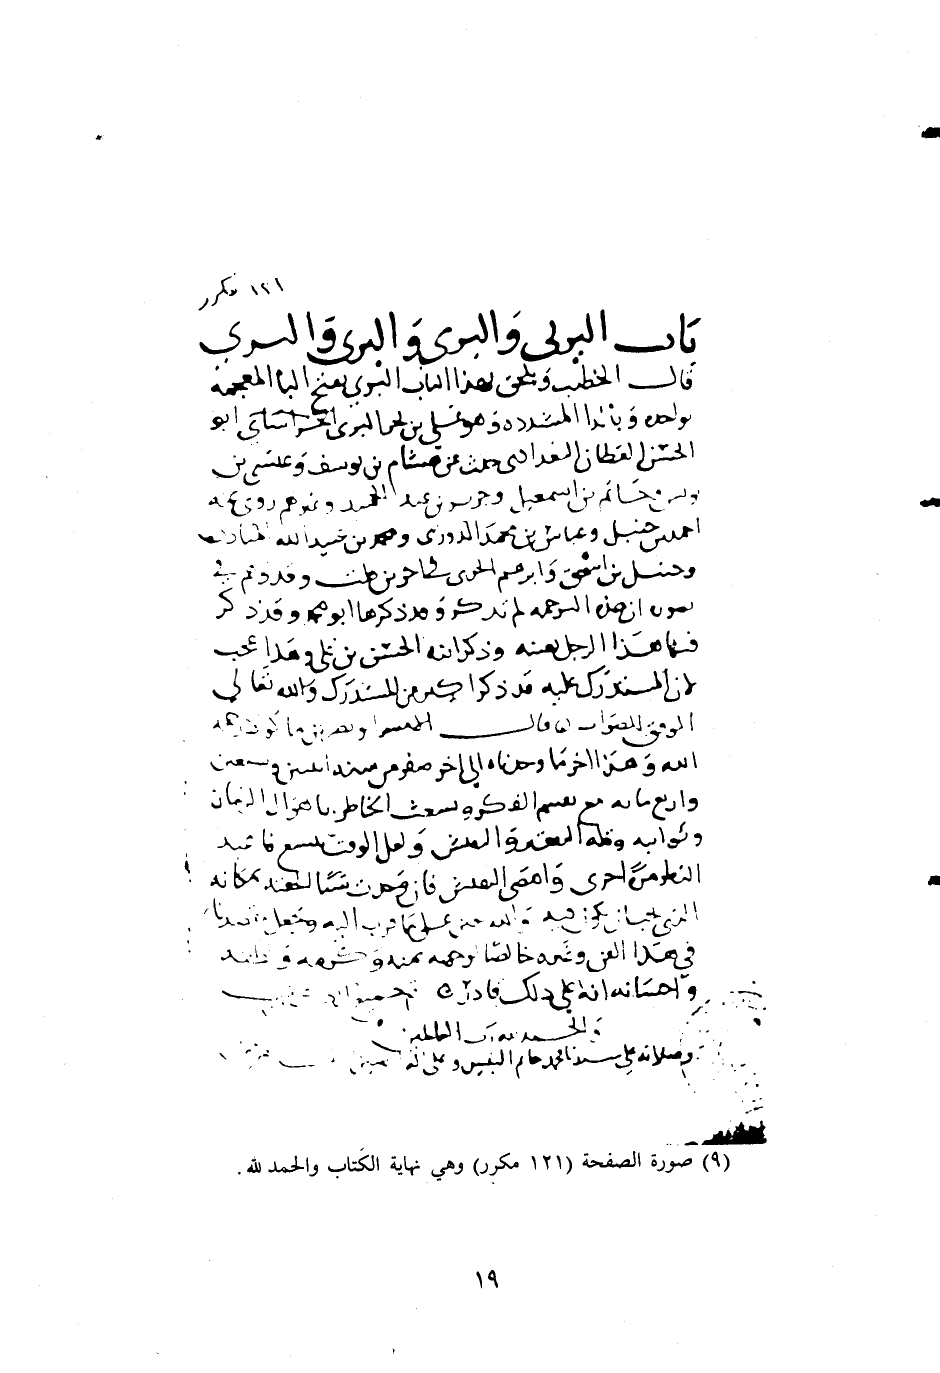 ١٢١ مكرر
باب البرتي والبري والبري والبري
قال الخطيب ويلحق بهذا الباب البري بفتح الباء المعجمة
بواحدة و المشددة وهو علي بن بحر البري ابو
الحسن القطان البغدادي حدث عن هشام بن يوسف وعيسى بن
يونس وحاتم بن اسمعيل وجرير بن عبد الحميد وغيرهم روى عنه
احمد بن حنبل وعباس بن محمد الدوري ومحمد بن عبيد الله المنادي
وحنبل بن اسحق وابرهيم الحربي في اخرين قلت وقد وهم في
ان هذه الترجمة لم تذكر وقد ذكرها ابو محمد وقد ذكر
فيها هذا الرجل بعينه وذكر انه الحسن بن علي وهذا عجب
لان المستدرك عليه قد ذكر اكثر من المستدرك والله تعالى
الموفق للصواب قال ما كولا رحمه
الله وهذا اخر ما وجدناه الى اخر صفر من سنة اثنين وسبعين
واربع مائة مع تقسم الفكر وتشعث الخاطر باهوال الزمان
ونوائبه وقلة ولعل الوقت يتسع فاعيد
النظر مرة اخرى فان وجدت شيئا الحقته بمكانه
الذي يجب ان يكون فيه والله يعين على ما قرب اليه ويجعل
في هذا الفن وغيره خالصا لوجهه بمنه وكرمه
واحسانه انه على ذلك قادر
والحمد لله رب العالمين
وصلاته على سيدنا محمد خاتم النبيين وعلى اله
(٩) صورة الصفحة (١٢١ مكرر) وهي نهاية الكتاب والحمد لله.
١٩